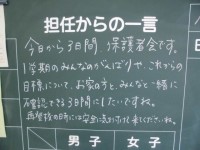 担任からの一言
今日から3日間、保護者会です。
1学期のみんなのがんばりや、これからの
目標について、お家の方と、みんなと一緒に
確認できる3日間にしたいですね。
には安全に気をつけて来てくださいね。
男子 女子